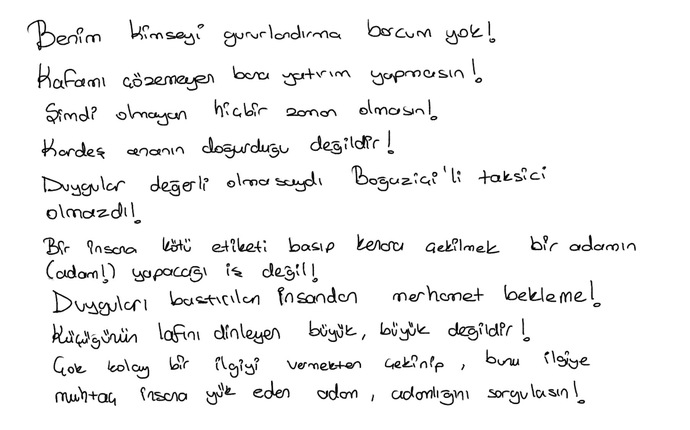 Benim kimseyi gururlandırma borcum yok!
Kafamı çözemeyen bana yatırım yapmasın!
Şimdi olmayan hiçbir zaman olmasın!
Kardeş ananın doğurduğu değildir!
Duygular değerli olmasaydı Boğaziçi'li taksici
olmazdı!
Bir insana kötü etiketi basıp kenara çekilmek bir adamın
(adam!) yapacağı iş değil!
Duyguları bastırılan insandan merhamet bekleme!
Küçüğünün lafını dinleyen büyük, büyük değildir!
Çok kolay bir ilgiyi vermekten çekinip, bunu ilgiye
muhtaç insana yük eden adam, adamlığını sorgulasın!